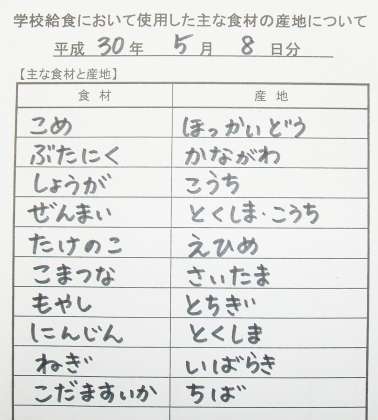 学校給食において使用した主な食材の産地について
平成 30 年 5 月 8 日分
【主な食材と産地】
食材 産地
こめ ほっかいどう
ぶたにく かながわ
しょうが こうち
ぜんまい とくしま・こうち
たけのこ えひめ
こまつな さいたま
もやし とちぎ
にんじん とくしま
ねぎ いばらき
こだますいか ちば